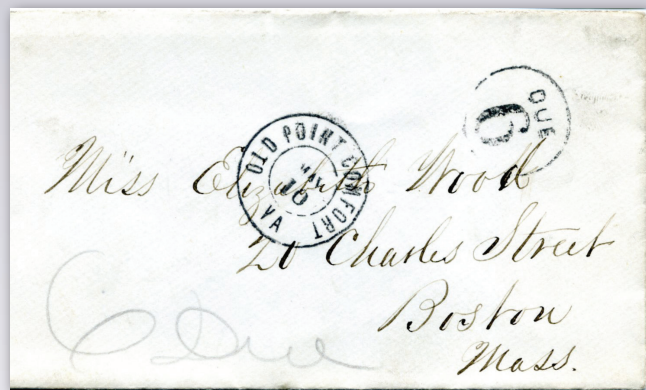 DUE
6
OLD POINT COMFORT
10
VA
Miss Elizabeth Wood
20 Charles Street
Boston
Mass.
6 Due